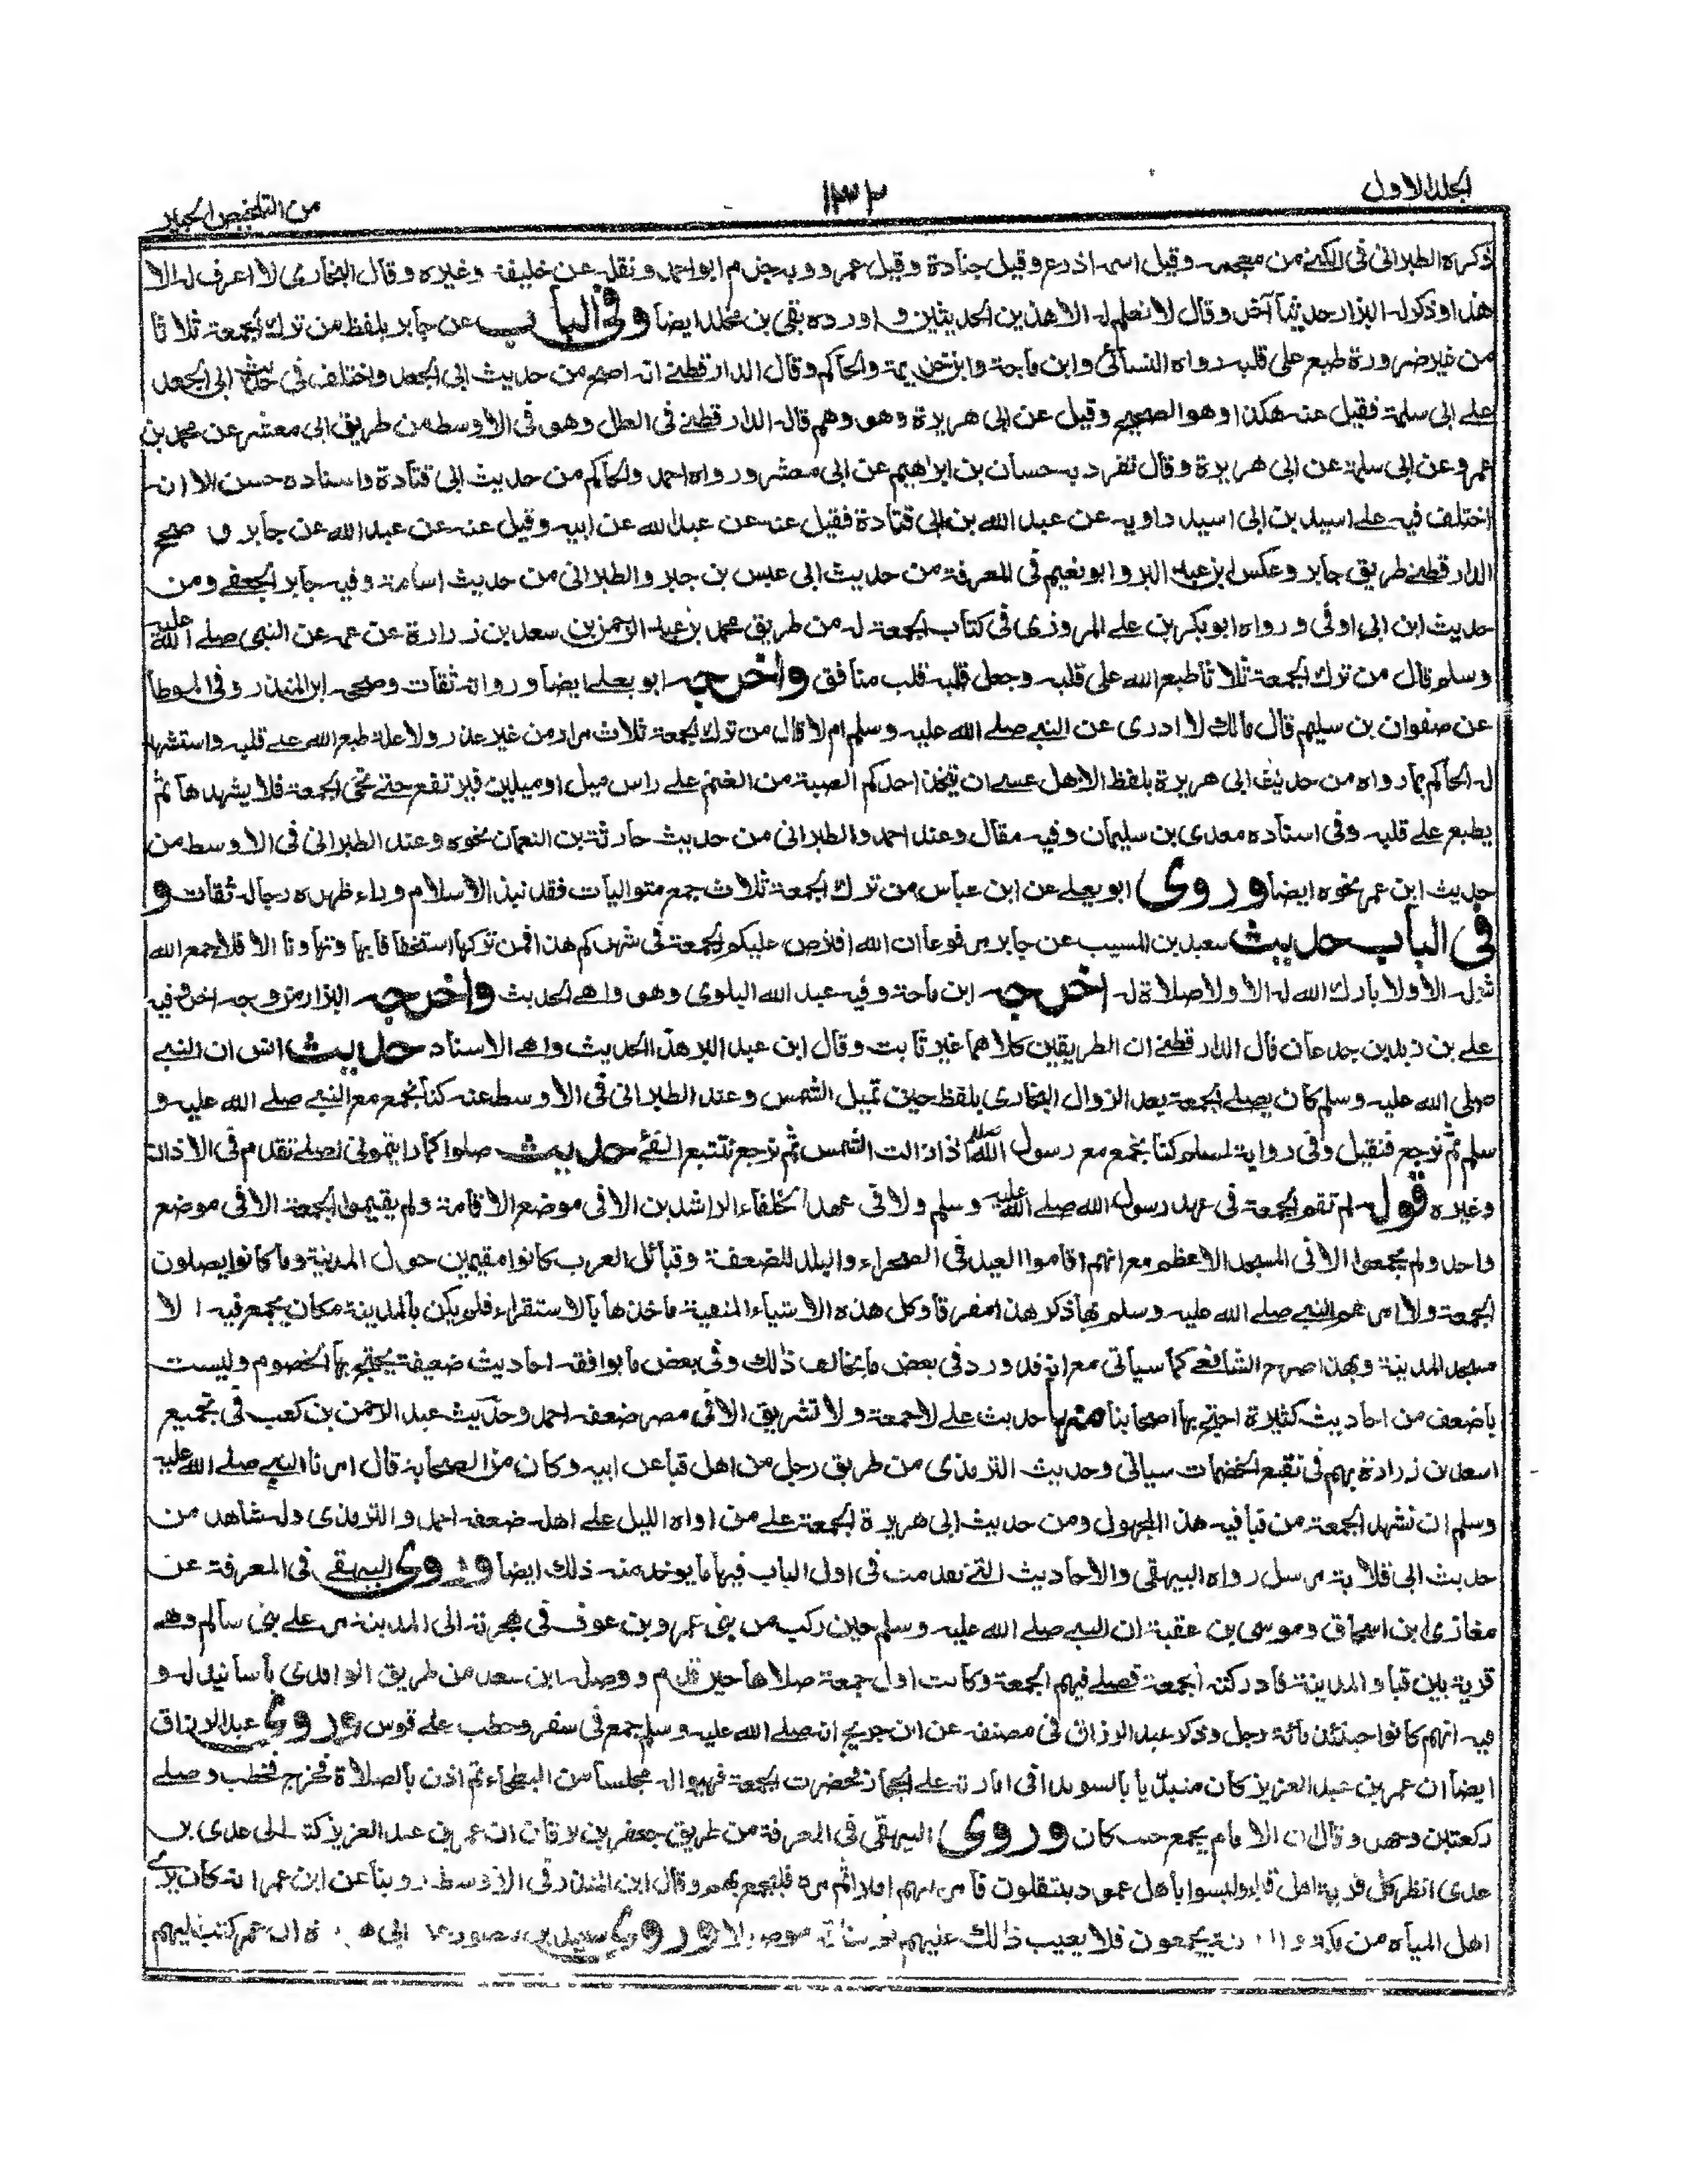 الجلد الاول
١٣٢
من التلخيص الحبير
ذكره الطبرانى فى الكنے من معجمه وقيل اسمه اذرع وقيل جنادة وقيل عمرو وبه جزم ابواحمد ونقله عن خليفة وغيره وقال البخارى لا اعرف له الا
هذا وذكر له البزار حديثا آخر وقال لا نعلم له الا هذين الحديثين واورده بقى بن مخلد ايضا وفى الباب عن جابر بلفظ من ترك الجمعة ثلاثا
من غير ضرورة طبع على قلبه رواه النسائى وابن ماجة وابن خزيمة والحاكم وقال الدارقطنے انه اصح من حديث ابى الجعد واختلف فى حديث ابى الجعد
علے ابى سلمة فقيل عنه هكذا وهو الصحيح وقيل عن ابى هريرة وهو وهم قاله الدارقطنے فى العلل وهو فى الاوسط من طريق ابى معشر عن محمد بن
عمرو عن ابى سلمة عن ابى هريرة وقال تفرد به حسان بن ابراهيم عن ابى معشر ورواه احمد والحاكم من حديث ابى قتادة واسناده حسن الا انه
اختلف فيه علے اسيد بن ابى اسيد راويه عن عبد الله بن ابى قتادة فقيل عنه عن عبد الله عن ابيه وقيل عنه عن عبد الله عن جابر و صحح
الدارقطنے طريق جابر وعكس ابن عبد البر وابو نعيم فى المعرفة من حديث ابى عبس بن جبر والطبرانى من حديث اسامة وفيه جابر الجعفے ومن
حديث ابن ابى اوفى ورواه ابو بكر بن علے المروزى فى كتاب الجمعة له من طريق محمد بن عبد الرحمن بن سعد بن زرارة عن عمه عن النبى صلے الله عليه
وسلم قال من ترك الجمعة ثلاثا طبع الله على قلبه وجعل قلبه قلب منافق واخرجه ابو يعلے ايضا ورواته ثقات وصححه ابن المنذر وفى الموطأ
عن صفوان بن سليم قال مالك لا ادرى عن النبے صلے الله عليه وسلم ام لا قال من ترك الجمعة ثلاث مرار من غير عذر ولا علة طبع الله علے قلبه واستشهد
له الحاكم بما رواه من حديث ابى هريرة بلفظ الا هل عسے ان يتخذ احدكم الصبة من الغنم علے راس ميل او ميلين فيرتفع حتے تجئ الجمعة فلا يشهدها ثم
يطبع علے قلبه وفى اسناده معدى بن سليمان وفيه مقال وعند احمد والطبرانى من حديث حارثة بن النعمان نحوه وعند الطبرانى فى الاوسط من
حديث ابن عمر نحوه ايضا وروى ابو يعلے عن ابن عباس من ترك الجمعة ثلاث جمع متواليات فقد نبذ الاسلام وراء ظهره رجاله ثقات و
فى الباب حديث سعيد بن المسيب عن جابر مرفوعا ان الله افترض عليكم الجمعة فى شهركم هذا فمن تركها استخفافا بها وتهاونا الا فلا جمع الله
شمله الا ولا بارك الله له الا ولا صلاة له اخرجه ابن ماجة وفيه عبد الله البلوى وهو واهے الحديث واخرجه البزار من وجه اخر وفيه
علے بن زيد بن جدعان قال الدارقطنے ان الطريقين كلاهما غير ثابت وقال ابن عبد البر هذا الحديث واهے الاسناد حديث انس ان النبے
صلى الله عليه وسلم كان يصلے الجمعة بعد الزوال البخارى بلفظ حين تميل الشمس وعند الطبرانى فى الاوسط عنه كنا نجمع مع النبے صلے الله عليه و
سلم ثم نرجع فنقيل وفى رواية لمسلم كنا نجمع مع رسول الله صلى اذا زالت الشمس ثم نرجع نتتبع الفئ حديث صلوا كما رايتمونى اصلے تقدم فى الاذان
وغيره قوله لم تقم الجمعة فى عهد رسول الله صلے الله عليه وسلم ولا فى عهد الخلفاء الراشدين الا فى موضع الاقامة ولم يقيموا الجمعة الا فى موضع
واحد ولم يجمعوا الا فى المسجد الاعظم مع انهم اقاموا العيد فى الصحراء والبلد للضعفة وقبائل العرب كانوا مقيمين حول المدينة وما كانوا يصلون
الجمعة ولا امرهم النبے صلے الله عليه وسلم بها ذكر هذا مفرقا وكل هذه الاشياء المنفية ماخذها بالاستقراء فلم يكن بالمدينة مكان يجمع فيه الا
مسجد المدينة وبهذا صرح الشافعے كما سياتى مع انه قد ورد فى بعض ما يخالف ذلك وفى بعض ما يوافقه احاديث ضعيفة يحتج بها الخصوم وليست
باضعف من احاديث كثيرة احتج بها اصحابنا منها حديث علے لا جمعة ولا تشريق الا فى مصر ضعفه احمد وحديث عبد الرحمن بن كعب فى تجميع
اسعد بن زرارة بهم فى نقيع الخضمات سياتى وحديث الترمذى من طريق رجل من اهل قبا عن ابيه وكان من الصحابة قال امرنا النبے صلے الله عليه
وسلم ان نشهد الجمعة من قبا فيه هذا المجهول ومن حديث ابى هريرة الجمعة علے من اواه الليل علے اهله ضعفه احمد والترمذى وله شاهد من
حديث ابى قلابة مرسل رواه البيهقى والاحاديث التے تقدمت فى اول الباب فيها ما يوخذ منه ذلك ايضا وروى البيهقے فى المعرفة عن
مغازى ابن اسحاق وموسى بن عقبة ان النبے صلے الله عليه وسلم حين ركب من بنى عمرو بن عوف فى هجرته الى المدينة مر علے بنى سالم وهے
قرية بين قبا والمدينة فادركته الجمعة فصلے فيهم الجمعة وكانت اول جمعة صلاها حين قدم ووصله ابن سعد من طريق الواقدى باسانيد له و
فيه انهم كانوا حينئذ مائة رجل وذكر عبد الرزاق فى مصنفه عن ابن جريج انه صلے الله عليه وسلم جمع فى سفر وخطب علے قوس وروى عبد الرزاق
ايضا ان عمر بن عبد العزيز كان متبديا بالسويدا فى امارته علے الحجاز فحضرت الجمعة فهيوا له مجلسا من البطحاء ثم اذن بالصلاة فخرج فخطب وصلے
ركعتين وجهر وقال ان الامام يجمع حيث كان وروى البيهقى فى المعرفة من طريق جعفر بن برقان ان عمر بن عبد العزيز كتب الى عدى بن
عدى انظر كل قرية اهل قرار وليسوا باهل عمود ينتقلون فامر عليهم اميرا ثم مره فليجمع بهم وقال ابن المنذر فى الاوسط روينا عن ابن عمر انه كان يرى
اهل المياه من مكة يجمعون فلا يعيب ذلك عليهم وروى سعيد بن ان عمر كتب اليهم